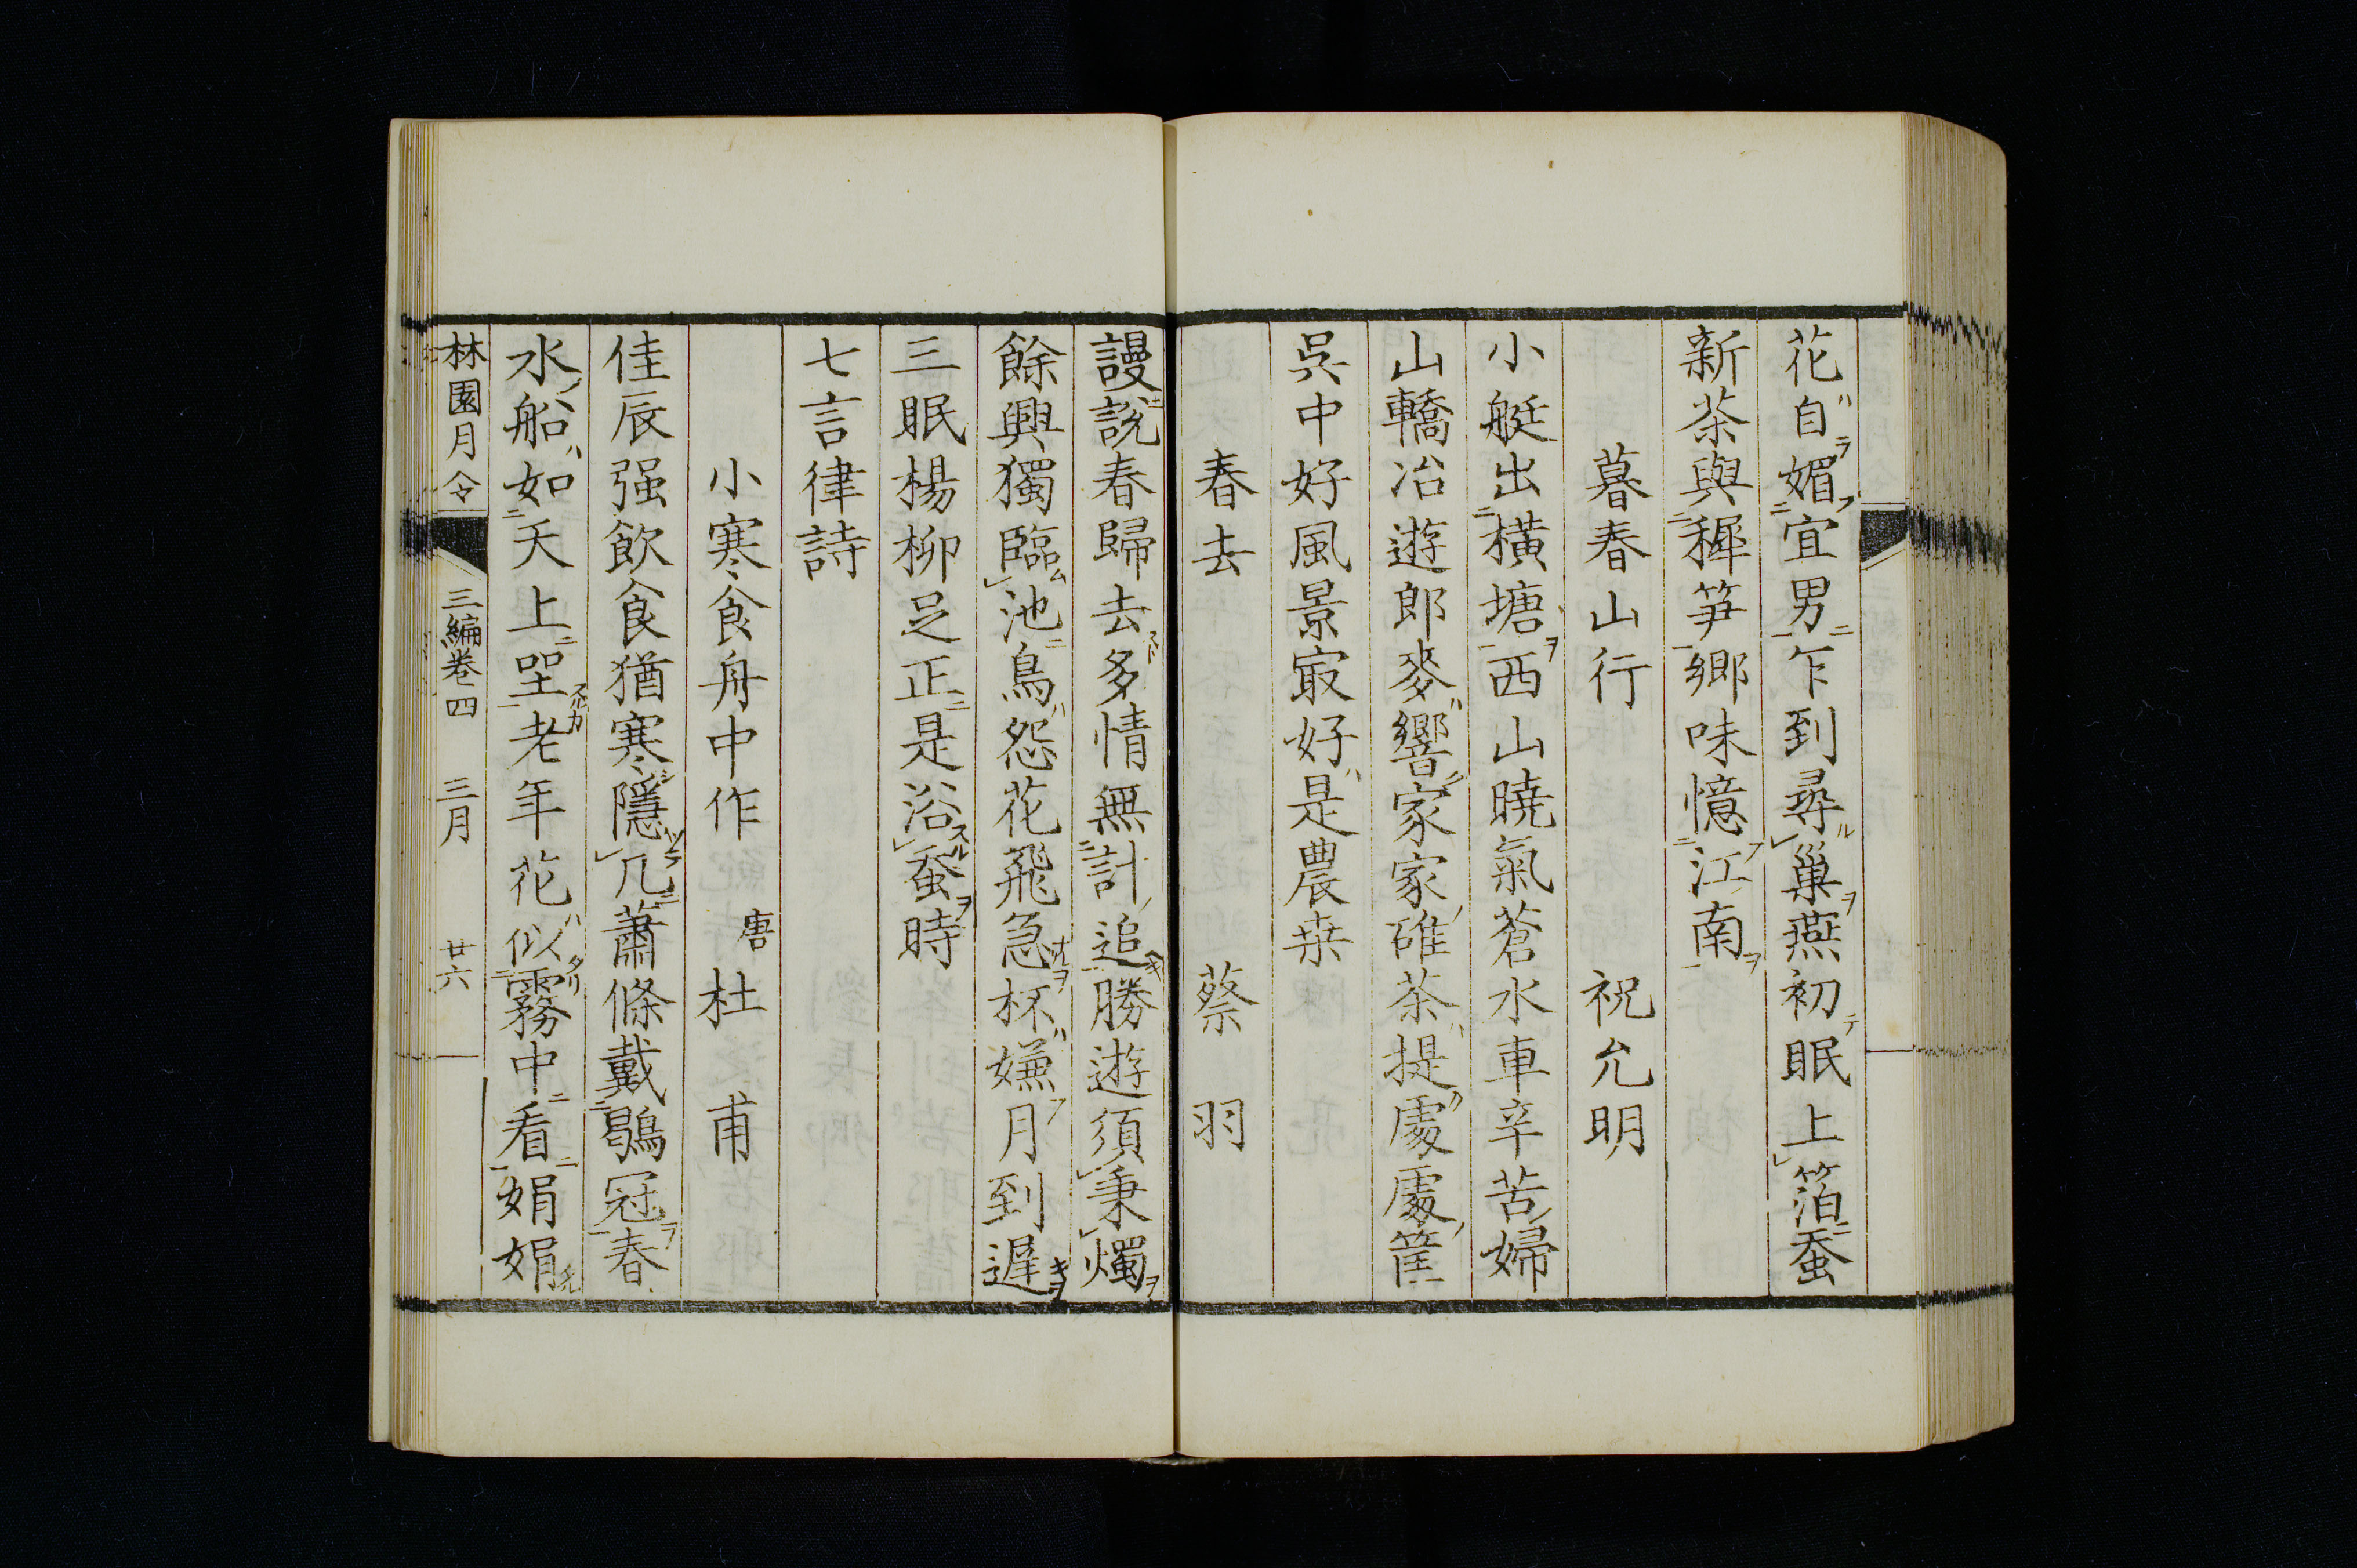 花自媚宜男乍到尋巢燕初眠上箔蚕
新茶與稺笋鄉味憶江南
暮春山行 祝允明
小艇出橫塘西山曉氣蒼水車辛苦婦
山轎冶遊郎麥響家家碓茶提處處筐
吳中好風景㝡好是農桒
春去 蔡羽
謾說春歸去多情無計追勝遊須秉燭
餘興獨臨池鳥怨花飛急杯嫌月到遲
三眠楊柳足正是浴蚕時
七言律詩
小寒食舟中作 唐 杜甫
佳辰强飲食猶寒隱几蕭條戴鶡冠春
水船如天上坐老年花似霧中看娟娟
林園月令 三編卷四 三月 廿六